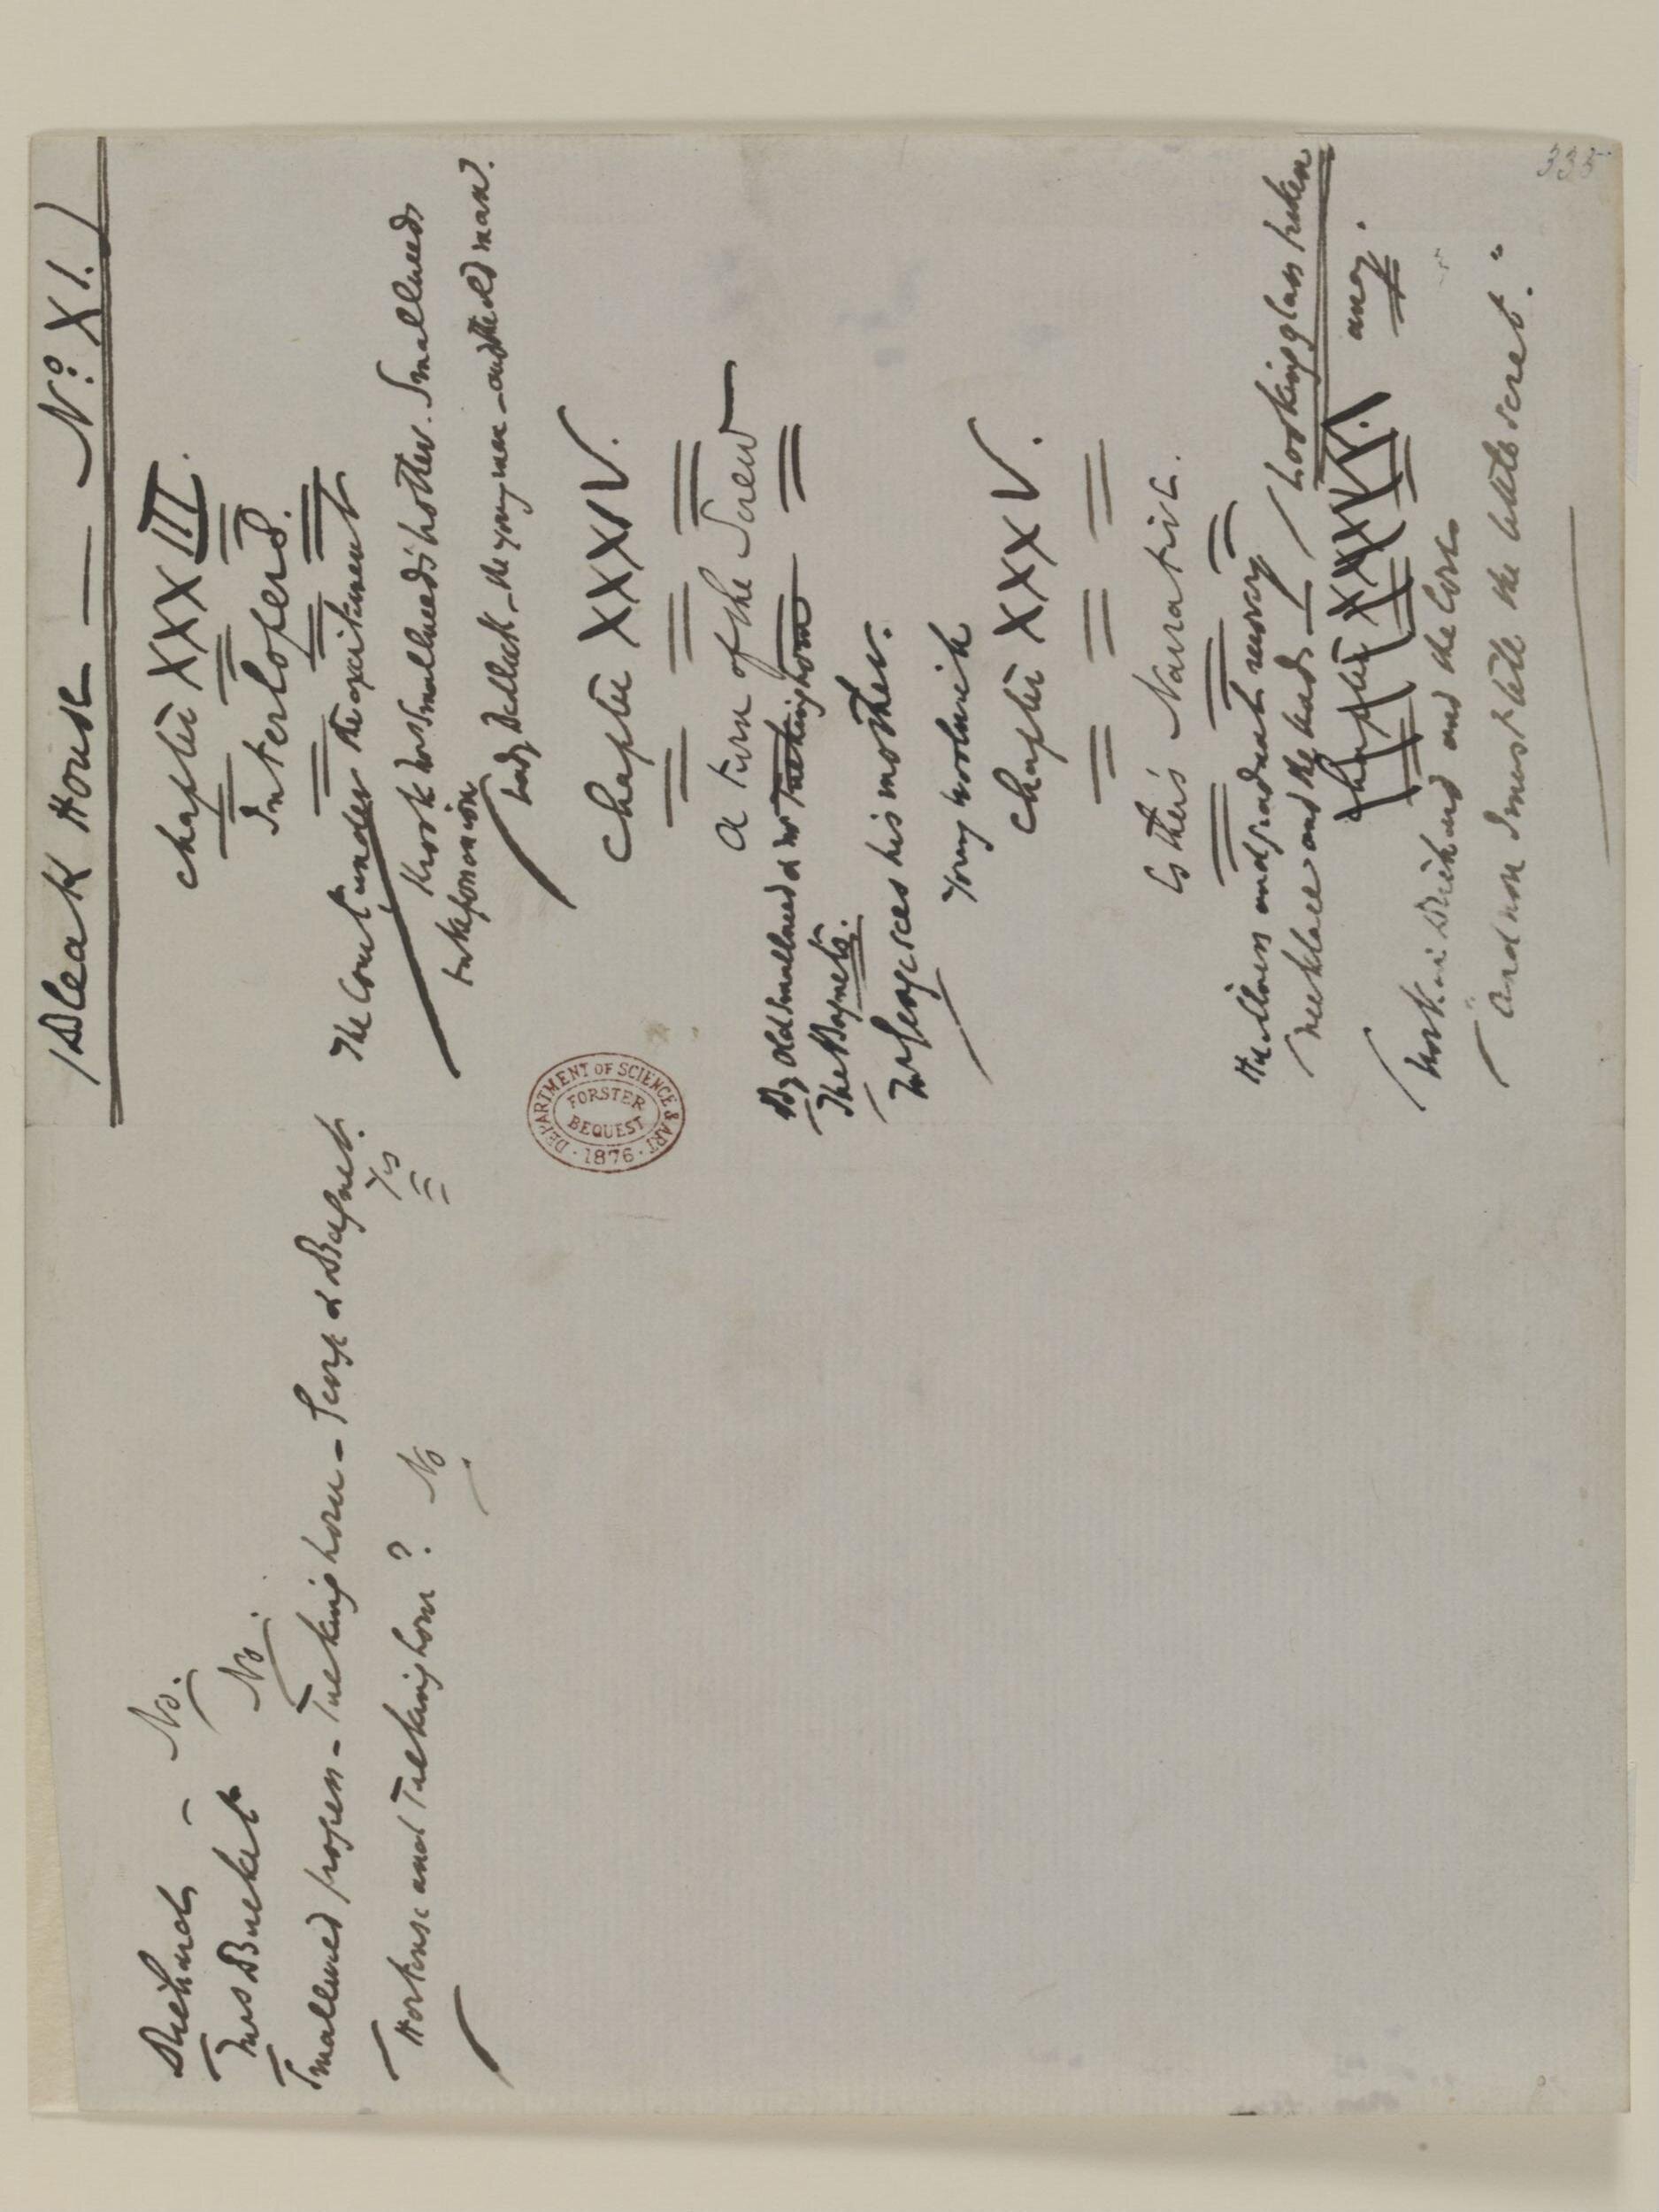 Richard – No.
Mrs Bucket No.
Smallweed papers – Tulkinghorn – George & Bagnet. Yes
Hortense and Tulkinghorn? No
Bleak House — No. XI.
chapter XXXIII.
Interlopers.
The Court, under the excitement
Krook Mrs Smallweed's brother. Smallweeds
take possession
Lady Dedlock – the young man – and the old man.
chapter XXXIV.
A turn of the Screw
By Old Smallweed & Mr Tulkinghorn
The Bagnets.
Mr George sees his mother.
Young Woolwich
chapter XXXV.
Esther's Narrative.
Her illness and gradual recovery
necklace and the beads
Looking glass taken
away.
chapter XXXVI.
Work in Richard and the Love
"And now I must tell the little secret."
335
DEPARTMENT OF SCIENCE & ART
FORSTER
BEQUEST
1876